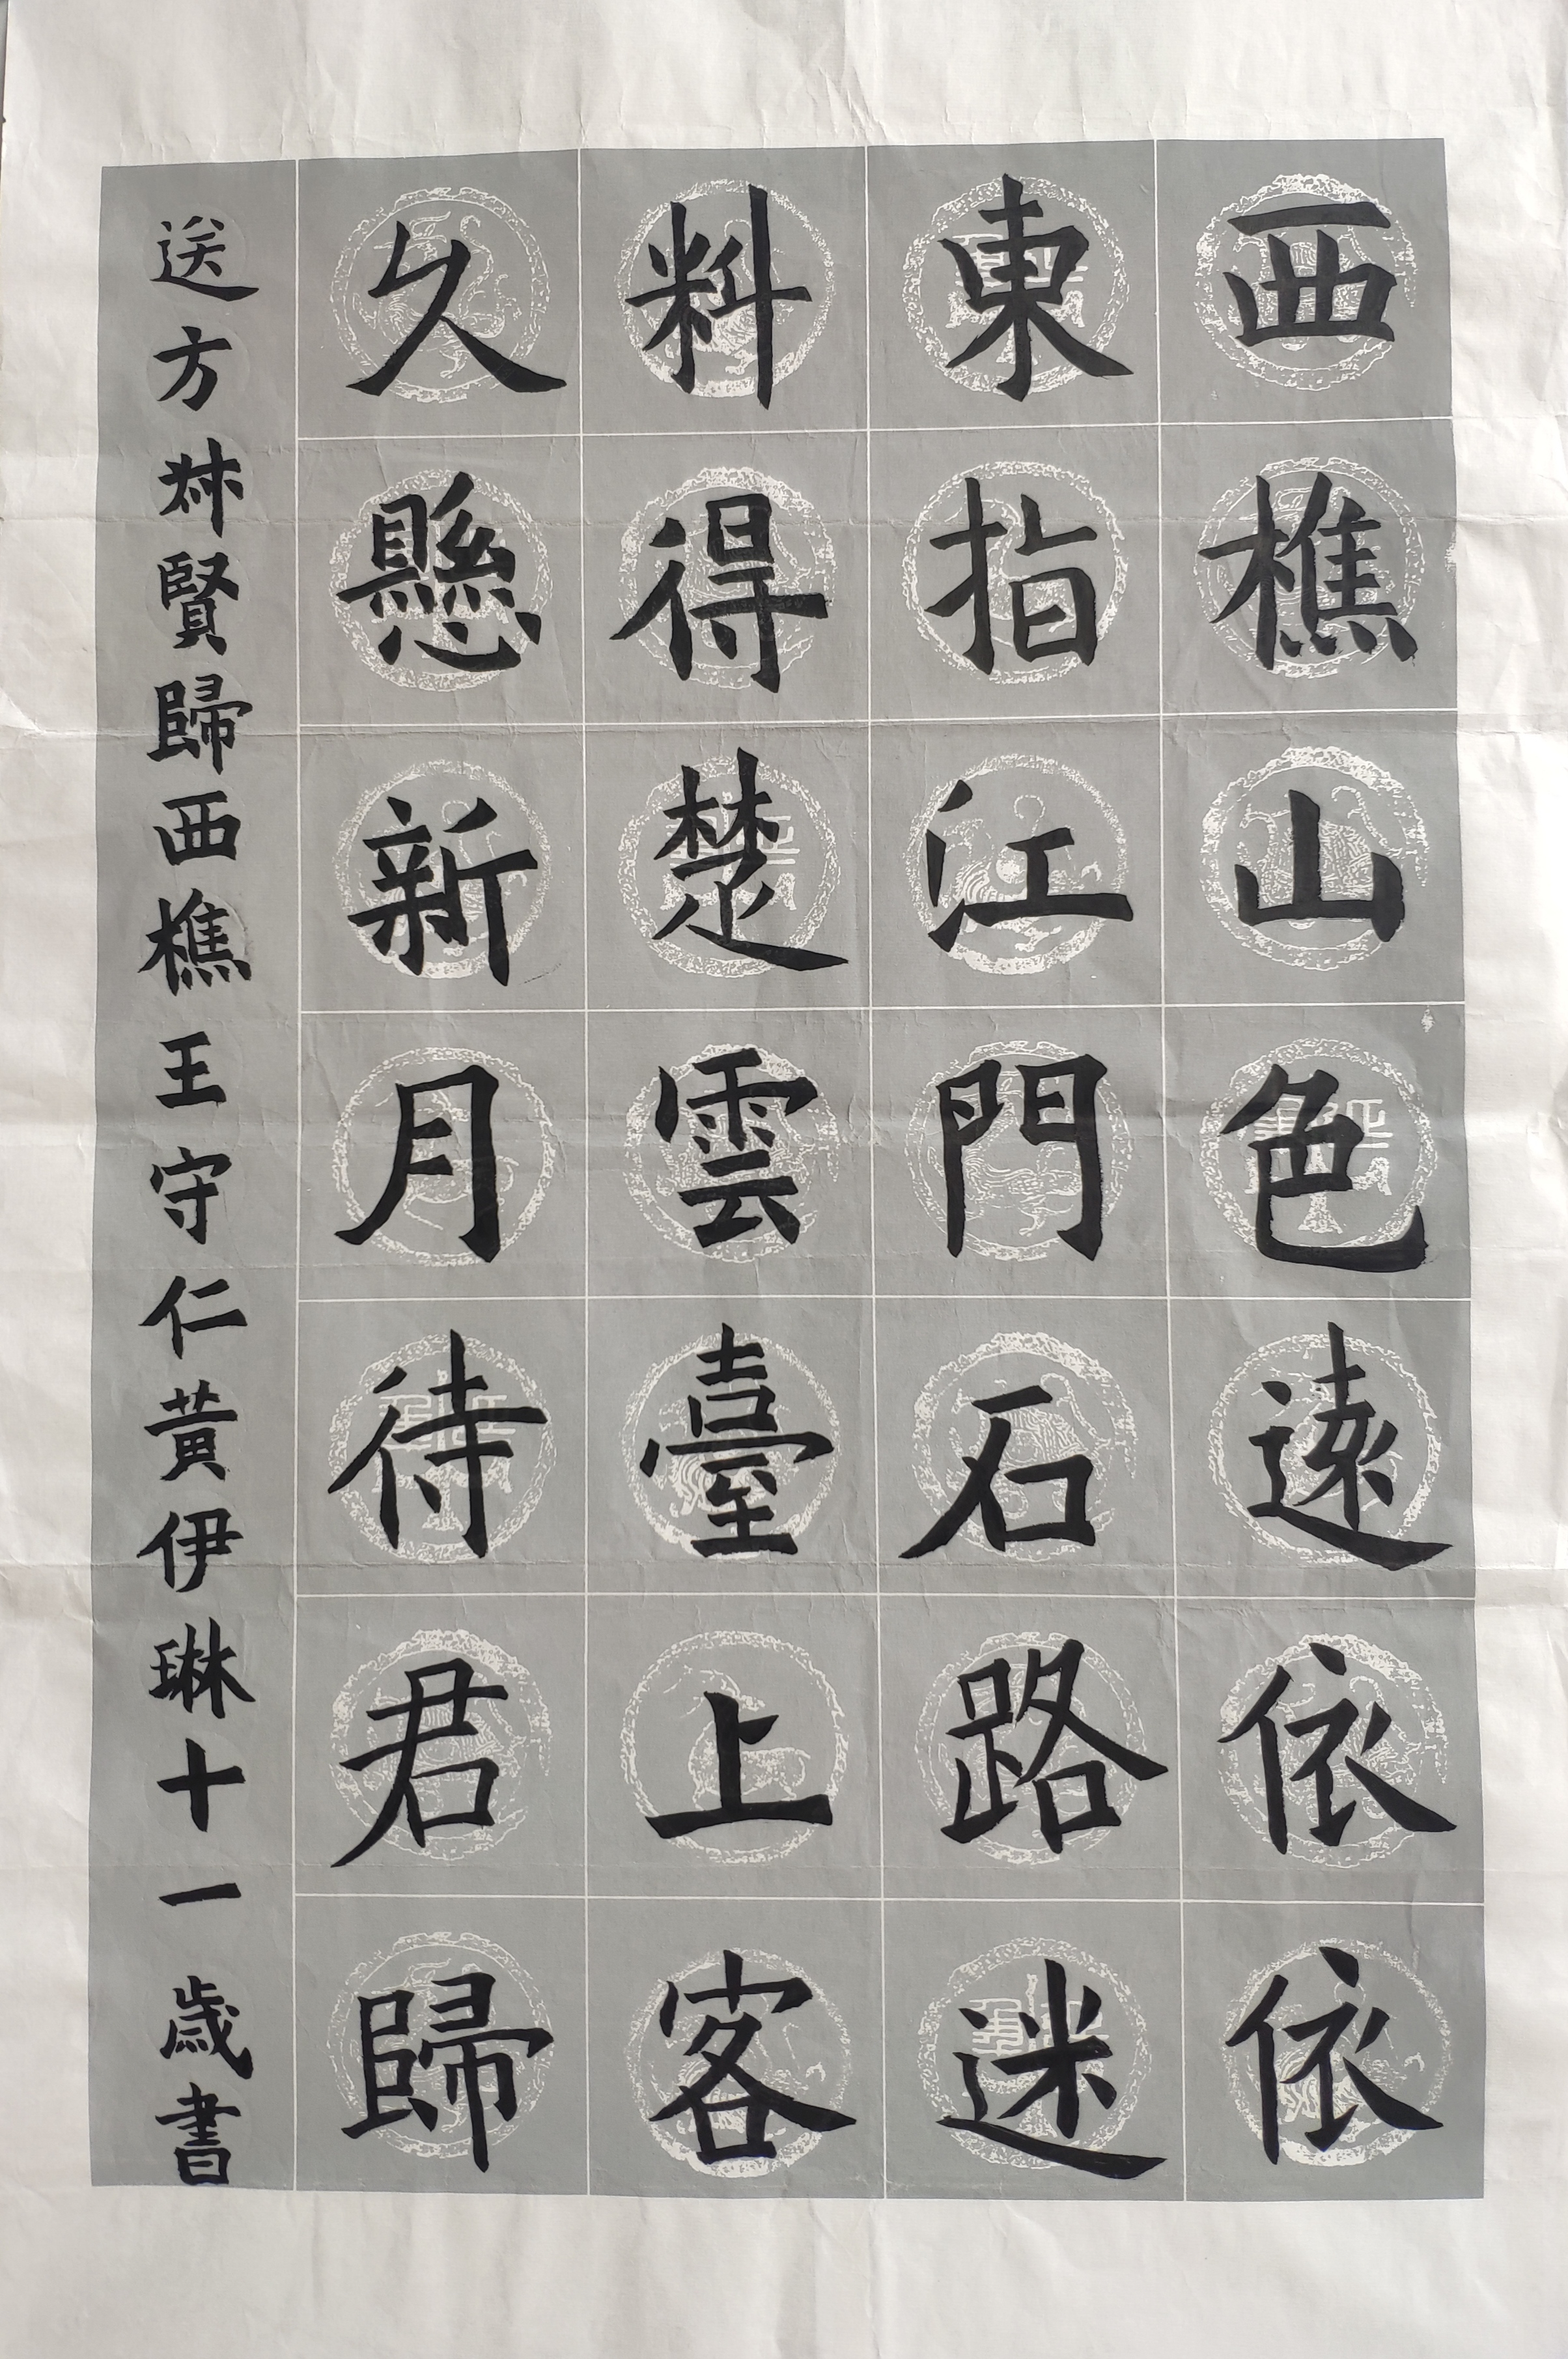 西樵山色遠依依
東指江門石路迷
料得楚雲臺上客
久懸新月待君歸
送方叔賢歸西樵王守仁黃伊琳十一歲書